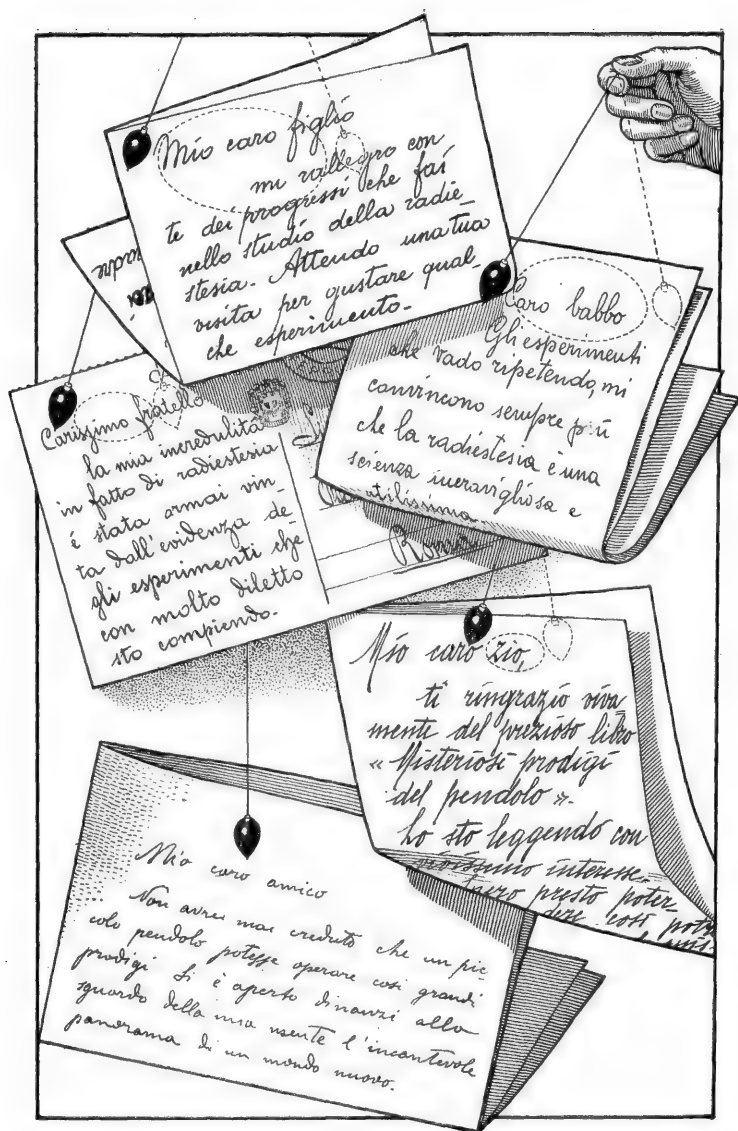 Mio caro figlio
mi rallegro con
te dei progressi che fai
nello studio della radie-
stesia. Attendo una tua
visita per gustare qual-
che esperimento.
Caro babbo
Gli esperimenti
che vado ripetendo, mi
convincono sempre più
che la radiestesia è una
scienza meravigliosa e
utilissima
Carissimo fratello
la mia incredulità
in fatto di radiestesia
é stata ormai vin-
ta dall'evidenza de-
gli esperimenti che
con molto diletto
sto compiendo.
Roma
Mio caro zio,
ti ringrazio viva
mente del prezioso libro
« Misteriosi prodigi
del pendolo ».
Lo sto leggendo con
vivissimo interesse.
Spero presto poter-
così
Mio caro amico
Non avrei mai creduto che un pic-
colo pendolo potesse operare così grandi
prodigi. Si è aperto dinanzi alla
sguardo della mia mente l'incantevole
panorama di un mondo nuovo.